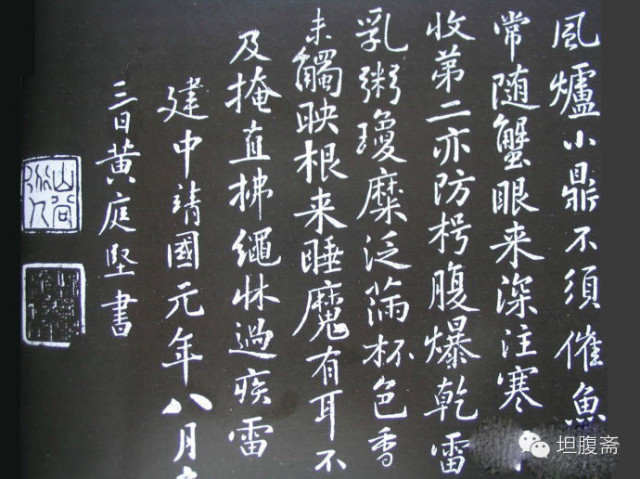 風爐小鼎不須催魚
常随蟹眼来深注寒
收第二亦防枵腹爆乾雷
乳粥瓊糜泛滿杯色香
未觸映根来睡魔有耳不
及掩直拂繩牀過疾雷
建中靖國元年八月
三日黄庭堅書
山谷道人
坦腹斋